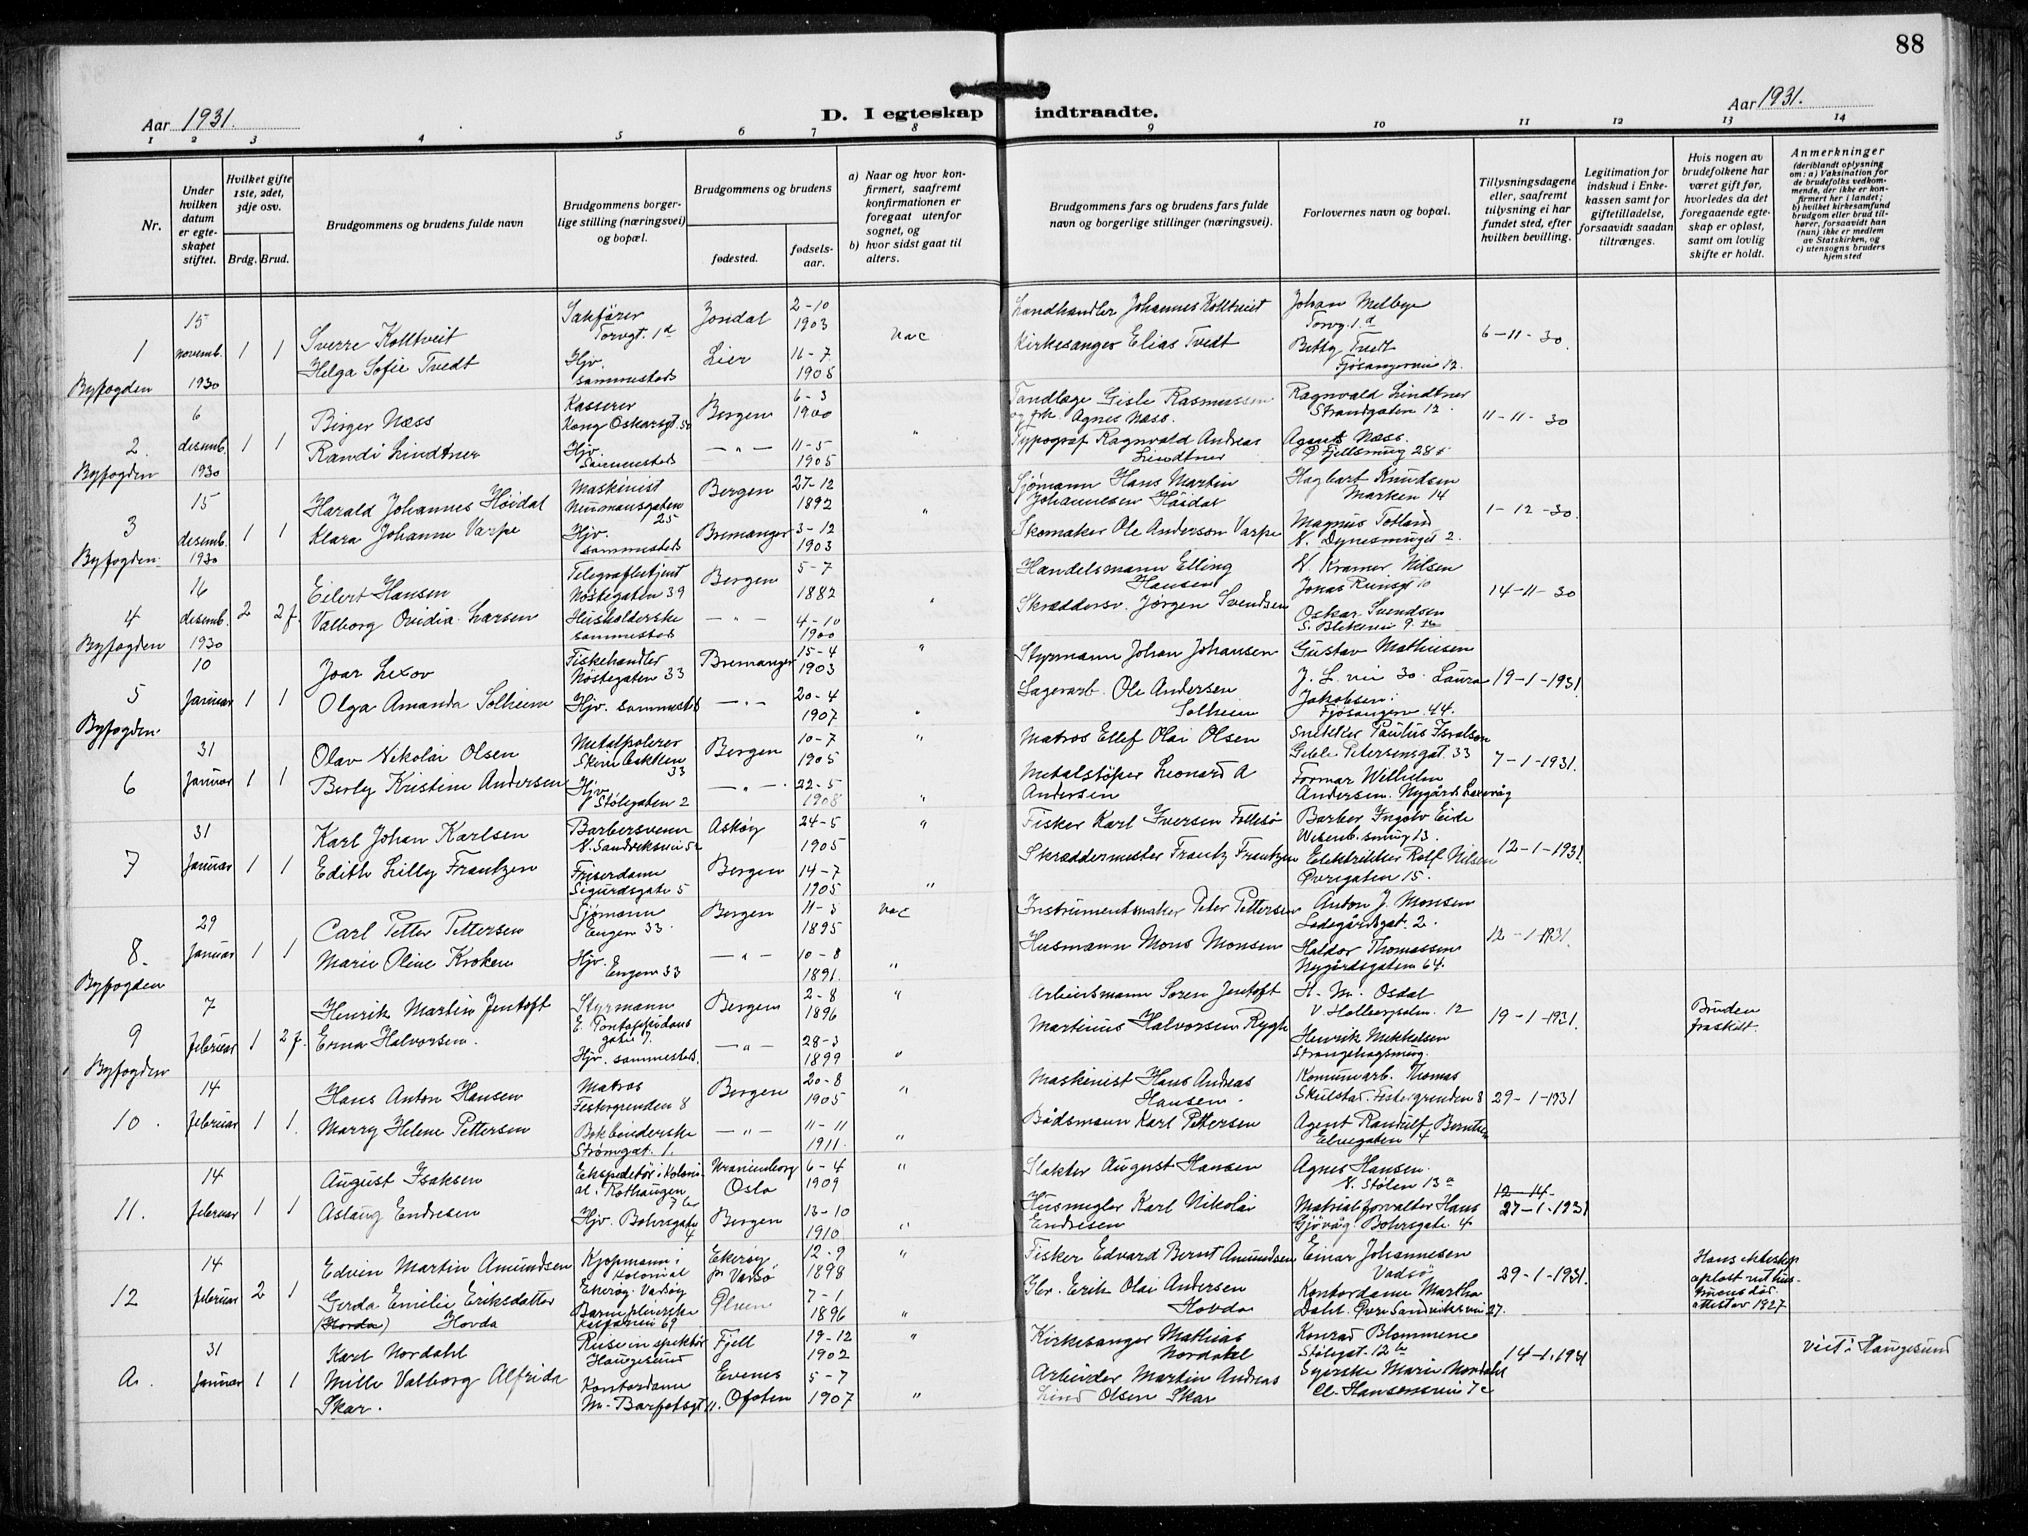 88
Aar 1931.
D. I egteskap indtraadte.
Aar 1931.
1 2 3 4 5 6 7 8 9 10 11 12 13 14
Nr.
Under hvilken datum er egteskapet stiftet.
Hvilket gifte 1ste, 2det, 3dje osv.
Brdg. Brud.
Brudgommens og brudens fulde navn
Brudgommens borgerlige stilling (næringsvei) og bopæl.
Brudgommens og brudens
fødested.
fødselsaar.
a) Naar og hvor konfirmert, saafremt konfirmationen er foregaat utenfor sognet, og
b) hvor sidst gaat til alters.
Brudgommens fars og brudens fars fulde navn og borgerlige stillinger (næringsvei).
Forlovernes navn og bopæl.
Tillysningsdagene eller, saafremt tillysning ei har fundet sted, efter hvilken bevilling.
Legitimation for indskud i Enkekassen samt for giftetilladelse, forsaavidt saadan tiltrænges.
Hvis nogen av brudefolkene har været gift før, hvorledes da det foregaaende egteskap er opløst, samt om lovlig skifte er holdt.
Anmerkninger
(deriblandt oplysning om: a) Vaksination for de brudefolks vedkommende, der ikke er konfirmert her i landet; b) hvilket kirkesamfund brudgom eller brud tilhører, forsaavidt han (hun) ikke er medlem av Statskirken, og c) utensogns bruders hjemsted
1 Byfogden
15 novemb. 1930
1 1
Sverre Kolltveit
Helga Sofie Tvedt
Sakfører Torvgt. 1a
Hjv. sammesteds
Jondal
Lier
2-10 1903
16-7 1905
vac
Landhandler Johannes Kolltveit
Kirkesanger Elias Tvedt
Johan Melbye Torvg. 1.a
Betty Tvedt Fjøsangerveien 12.
6-11-30.
2. Byfogden
6 desemb. 1930
1 1
Birger Næss
Randi Lindtner
Kasserer Kong Oskarsgt.
Hjv. Sammesteds
Bergen
— " —
6-3 1900
11-5 1905
"
Tandlæge Gisle Rasmussen og frk. Agnes Næss.
Typograf Ragnvald Andreas Lindtner
Ragnvald Lindtner Strandgaten 12.
Agnes Næss. Ø Fjellsmug 28
11-11-30
3 Byfogden
15 desemb. 1930
1 1
Harald Johannes Höidal
Klara Johanne Varpe
Maskinist Neumansgaten 25
Hjv. sammesteds
Bergen
Bremanger
27-12 1892
3-12 1903
"
Sjømann Hans Martin Johannesen Höidal
Skomaker Ole Anderson Varpe
Hagbart Knudsen Marken 14
Magnus Totland N. Dynesmuget 2.
1-12-30.
4 Byfogden
16 desemb. 1930
2 2 f.
Eilert Hansen
Valborg Ovidia Larsen
Telegrafbetjent Nøstegaten 39
Husholderske sammesteds
Bergen
— " —
5-7 1882
4-10 1900
"
Handelsmann Elling Hansen
Skræddersv. Jørgen Svendsen
H. Kramer Nilsen Jonas Reinsgt 10
Oskar Svendsen S. Blekevei 9.
14-11-30
5 Byfogden
10 Januar
1 1
Joar Lexov
Olga Amanda Solheim
Fiskehandler Nøstegaten 33
Hjv. sammesteds
Bremanger
— " —
15-4 1903
20-4 1907
"
Styrmann Johan Johansen
Lagerarb. Ole Andersen Solheim
Gustav Mathiesen J. L. vei 30.
Laura Jakobsen Fjøsangerv. 44.
19-1-1931.
6
31 Januar
1 1
Olav Nikolai Olsen
Berly Kristine Andersen
Metalpolerer 33
Hjv. Stølegaten 2
Bergen
— " —
10-7 1905
22-5 1908
"
Matros Ellef Olai Olsen
Metalstøper Leonard A Andersen
Snekker Paulus Isralsen Geble Petersensgat. 33
Formar Wilhelm Andersen. Nygård Laxevåg
7-1-1931.
7
31 Januar
1 1
Karl Johan Karlsen
Edith Lilly Frantzen
Barbersvenn N. Sandviksvei
Friserdame Sigurdsgate 5
Askøy
Bergen
24-5 1905
14-7 1905
"
Fisker Karl Iversen Follesø
Skræddermester Frantz Frantzen
Barber Ingolv Eide Wesenb. smug 13.
Elektrikker Rolf Nilsen Øvregaten 15.
12-1-1931.
8. Byfogden
29 Januar
1 1
Carl Petter Pettersen
Marie Oline Kroken
Sjømann Engen 33.
Hjv. Engen 33
Bergen
— " —
11-3 1895
10-8 1891.
vac
"
Instrumentmaker Peter Pettersen
Husmann Mons Monsen
Anton J. Monsen Ladegårdsgat. 2.
Haldor Thomassen Nygårdsgaten 64.
12-1-1931.
9 Byfogden
7 februar
1 2 f.
Henrik Martin Jentoft
Erna Halvorsen.
Styrmann E. Pontoppidans gate 7.
Hjv. sammesteds.
Bergen
— " —
2-8 1896
28-3 1899
"
Arbeidsmann Søren Jentoft
Martinus Halvorsen Rygh
H. M. Osdal V Holbergsalm. 12
Henrik Mikkelsen Strangehagsmug.
19-1-1931.
Bruden fraskilt.
10.
14 februar
1 1.
Hans Anton Hansen
Marry Helene Pettersen
Matros Festergrenden 8
Bokbinderske Strømgat. 1.
Bergen
— " —
20-8 1905
11-11 1911.
"
Maskinist Hans Andreas Hansen.
Bådsmann Karl Pettersen
Komunarb. Thomas Skulstad. Festergrenden 8
Agent Randulf Berntsen Elvegaten 4
29-1-1931
11.
14 februar
1 1
August Isaksen
Aslaug Endresen
Ekspeditør i Kolonial. Rothaugen
Hjv. Bohrsgate 4
Uranienborg Oslo
Bergen
6-4 1909
13-10 1910
"
Slakter August Hansen
Husmegler Karl Nikolai Endresen
Agnes Hansen. N. Stølen 13a
Matrialforvalter Hans Gjövåg Bohrsgate 4
12-14.
27-1-1931
12
14 februar
2 1
Edvin Martin Amundsen
Gerda Emilie Eriksdatter (Horda) Hovda
Kjøpmann i Kolonial Ekerøy Vadsø
Ekerøy pr Vadsø
Ølven
12-9 1898
7-1 1896
"
Fisker Edvard Bernt Amundsen
Gbr. Erik Olai Andersen Hovda
Einar Johannesen Vadsø
Kontordame Martha Dahl. Øvre Sandviksvei 27.
29-1-1931.
Hans ekteskap opløst ved hustruens død attest av 1927
A.
31 Januar
1 1
Karl Nordahl
Mille Valborg Alfrida Skar.
Reiseinspektør Haugesund
Kontordame M. Barfotsgt 11.
Fjell
Evenes Ofoten
19-12 1902
5-7 1907
"
Kirkesanger Mathias Nordahl
Arbeider Martin Andreas Lind Olsen Skar
Konrad Blommene Stølegat. 12
Syerske Marie Nordahl Cl. Hansensvei 7c
14-1-1931
viet i Haugesund